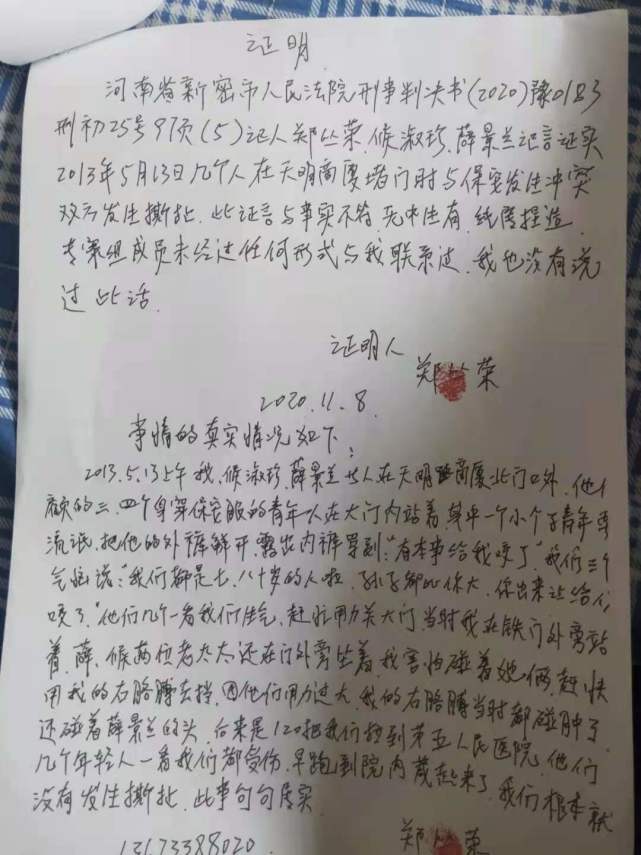 证明
河南省新密市人民法院刑事判决书(2020)豫0183
刑初25号97页(5)记人郑丛荣、候淑珍、薛景兰记言证实
2013年5月13日几个人在天明商厦堵门时与保安发生冲突
双方发生撕扯、此证言与事实不符、无中生有、纯属捏造、
专案组成员未经过任何形式与我联系过、我也没有说
过此话、
证明人
郑丛荣
2020.11.8.
事情的真实情况如下:
2013.5.13上午我、候淑珍薛景兰 人在天明 商厦北门口外、他们
雇的三、四个身穿保安服的青年人在大门内站着其中一个小个子青年耍
流氓、把他的外裤解开、露出内裤骂到:"有本事给我咬了"我们三个
气恼说:"我们都是七、八十岁的人啦、孙子都比你大、你出来让给你
咬了、"他们几个一看我们生气、赶忙用力关大门、当时我在铁门外旁站
着、薛、候两位老太太还在门外旁坐着、我害怕碰着她俩、赶快
用我的右胳膊去挡、因他们用力过大、我的右胳膊当时都碰肿了、
还碰着薛景兰的头、后来是120把我们拉到第五人民医院、他们
几个年轻人一看我们都受伤、早跑到院内藏起来了、我们根本就
没有发生撕扯、此事句句属实、
13173388020
郑丛荣